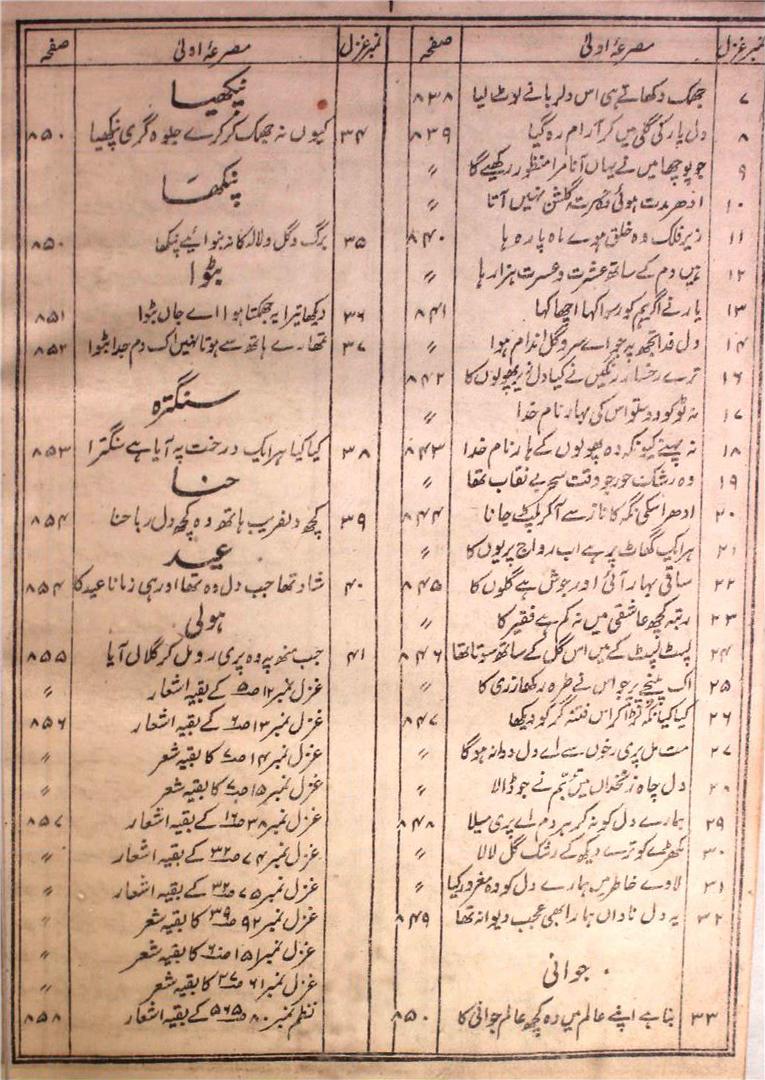 ا
نمبر غزل مصرعۂ اولیٰ صفحہ
۷ جھمک دکھاتے ہی اس دلربا نے لوٹ لیا ۸۳۸
۸ دل یار کی گلی میں کر آرام رہ گیا ۸۳۹
۹ جو پوچھا میں نے یہاں آنا مرا منظور رکھیے گا 〃
۱۰ ادھر مدت ہوئی گلشن نہیں آتا 〃
۱۱ زیر فلک وہ خلق میں اے ماہ پارہ ہا ۸۴۰
۱۲ ہیں دم کے ساتھ عشرت و عسرت ہزارہا 〃
۱۳ یار نے اگر ہم کو رسوا کہا اچھا کہا ۸۴۱
۱۴ دل فدا تجھ پہ جو اے سرو گل اندام ہوا 〃
۱۶ ترے رخسار رنگیں نے کیا دل زیر پھولوں کا ۸۴۲
۱۷ نہ ٹوکو دوستو اس کی بہار نام خدا 〃
۱۸ نہ پہنے کیونکہ وہ پھولوں کے ہار نام خدا ۸۴۳
۱۹ وہ رشک حور جو وقت سحر بے نقاب تھا 〃
۲۰ ادھر اسکی نگہ کا ناز سے آکر پلٹ جانا ۸۴۴
۲۱ ہر ایک گھاٹ پر ہے اب رواج پریوں کا 〃
۲۲ ساقی بہار آئی اور جوش ہے گلوں کا ۸۴۵
۲۳ رتبہ کچھ عاشقی میں نہ کم ہے فقیر کا 〃
۲۴ لپٹ لپٹ کے میں اس گل کے ساتھ سوتا تھا ۸۴۶
۲۵ اک پنیچ پر جو اس نے طرہ رکھا زری کا 〃
۲۶ کیا کیا نگہ لڑا کر اس فتنہ گر کو دیکھا ۸۴۷
۲۷ مت مل پری رخوں سے اے دل دوانہ ہوگا 〃
۲۸ دل چاہ زنخداں میں تم نے جو ڈالا 〃
۲۹ ہمارے دل کو نہ کر ہر دم اے پری میلا ۸۴۸
۳۰ مکھڑے کو ترے دیکھ کے رشک گل لالا 〃
۳۱ لاوے خاطر میں ہمارے دل کو وہ مغرور کیا 〃
۳۲ یہ دل ناداں ہمارا بھی عجب دیوانہ تھا ۸۴۹
جوانی
۳۳ بنا ہے اپنے عالم میں وہ کچھ عالم جوانی کا ۸۵۰
نمبر غزل مصرعۂ اولیٰ صفحہ
نپکھیا
۳۴ کیوں نہ جھمک کر کرے جلوہ گری پنکھیا ۸۵۰
پنکھا
۳۵ برگ و گل و لالہ کا نہ بنوائیے پنکھا ۸۵۰
بٹوا
۳۶ دیکھا تیرا یہ جھمکتا ہوا اے جاں بٹوا ۸۵۱
۳۷ تمھارے ہاتھ سے ہوتا نہیں اک دم جدا بٹوا ۸۵۲
سنگترہ
۳۸ کیا کیا ہر ایک درخت پہ آیا ہے سنگترا ۸۵۳
حنا
۳۹ کچھ دلفریب ہاتھ وہ کچھ دل ربا حنا ۸۵۴
عید
۴۰ شاد تھا جب دل وہ تھا اور ہی زمانا عید کا ۸۵۴
ہولی
۴۱ جب منھ پہ وہ پری رو مل کر گلال آیا ۸۵۵
غزل نمبر ۱۲ صـ۵ کے بقیہ اشعار 〃
غزل نمبر ۱۳ صـ۶ کے بقیہ اشعار ۸۵۶
غزل نمبر ۱۴ صـ۷ کا بقیہ شعر 〃
غزل نمبر ۱۵ صـ۷ کا بقیہ شعر 〃
غزل نمبر ۳۸ صـ۱۶ کے بقیہ اشعار ۸۵۷
غزل نمبر ۷۴ صـ۳۲ کے بقیہ اشعار 〃
غزل نمبر ۷۵ صـ۳۲ کے بقیہ اشعار 〃
غزل نمبر ۹۲ صـ۳۹ کا بقیہ شعر 〃
غزل نمبر ۱۵۱ صـ۶ کا بقیہ شعر 〃
غزل نمبر ۶۱ صـ۲۷ کا بقیہ شعر 〃
نظم نمبر ۸۰ صـ۵۶۵ کے بقیہ اشعار ۸۵۸